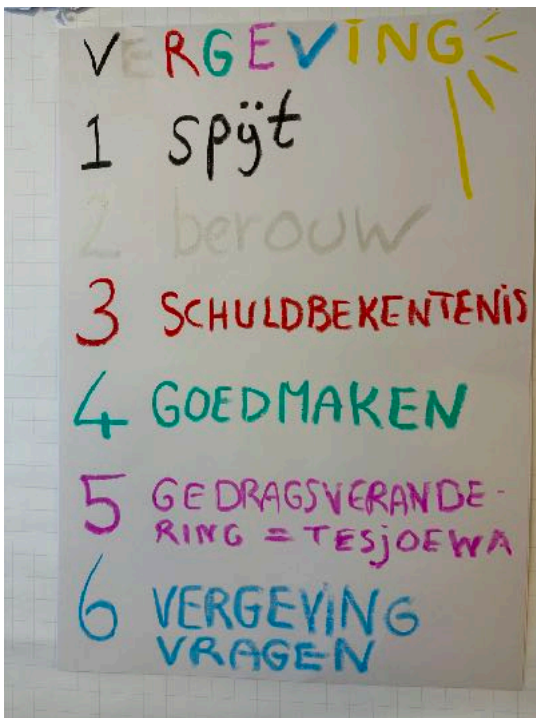 VERGEVING
1 spijt
2 berouw
3 SCHULDBEKENTENIS
4 GOEDMAKEN
5 GEDRAGSVERANDE-
RING = TESjOEWA
6 VERGEVING
VRAGEN